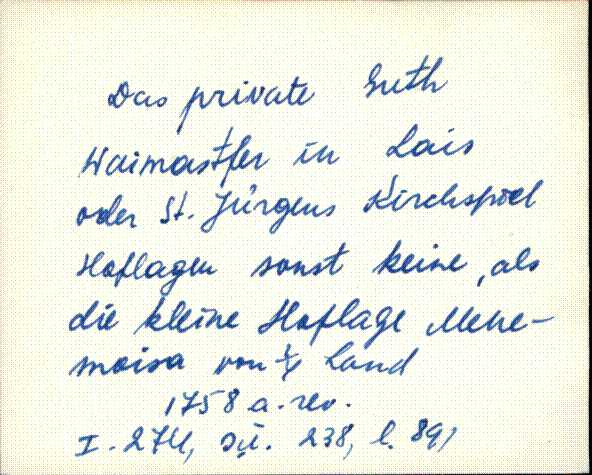 Das private Guth
Waimastfer in Lais
oder St. Jürgens Kirchspiel
Hoflagen sonst keine, als
die kleine Hoflage Mene-
moisa von Land
1758 a. rev.
I. 274, sü. 238, l. 891